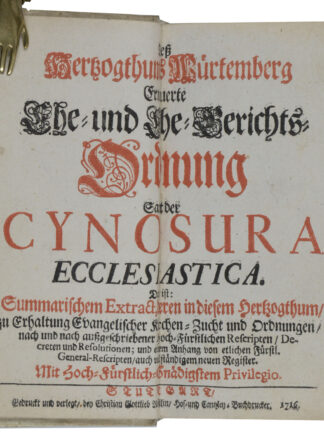 Deß
Hertzogthums Würtemberg
Erneuerte
Ehe- und Ehe-Gerichts-
Ordnung
Sat der
CYNOSURA
ECCLESIASTICA.
Das ist:
Summarischem Extracten in diesem Hertzogthum /
zu Erhaltung Evangelischer Kirchen-Zucht und Ordnungen /
nach und nach außgeschriebener Hoch-Fürstlichen Rescripten / De-
creten und Resolutionen; und einem Anhang von etlichen Fürstl.
General-Rescripten / auch vollständigem neuen Register.
Mit Hoch-Fürstlich-Gnädigstem Privilegio.
STUTGART /
Gedruckt und verlegt / bey Christian Gottlieb Hof- und Cantzley-Buchdrucker. 1716.